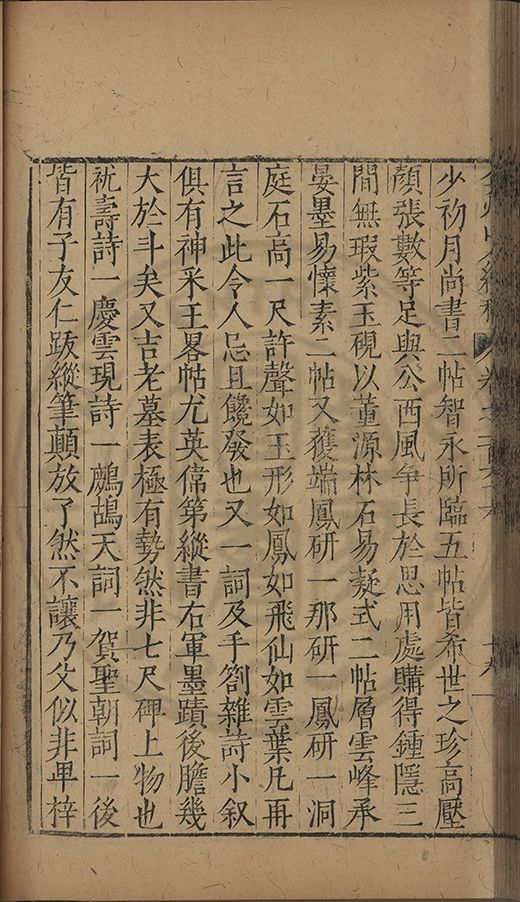 少初月尚書二帖智永所臨五帖皆希世之珍高壓
顏張數等足與公西風爭長於思用處購得鍾隱三
間無瑕紫玉硯以董源林石易凝式二帖層雲峰承
晏墨易懷素二帖又獲端鳳研一那研一鳳研一洞
庭石高一尺許聲如玉形如鳳如飛仙如雲葉凡再
言之此令人忌且饞發也又一詞及手劄雜詩小叙
俱有神采王畧帖尤英偉第縱書右軍墨蹟後膽幾
大於斗矣又吉老墓表極有勢然非七尺碑上物也
祝壽詩一慶雲現詩一鷓鴣天詞一賀聖朝詞一後
皆有子友仁跋縱筆顛放了然不讓乃父似非毕梓